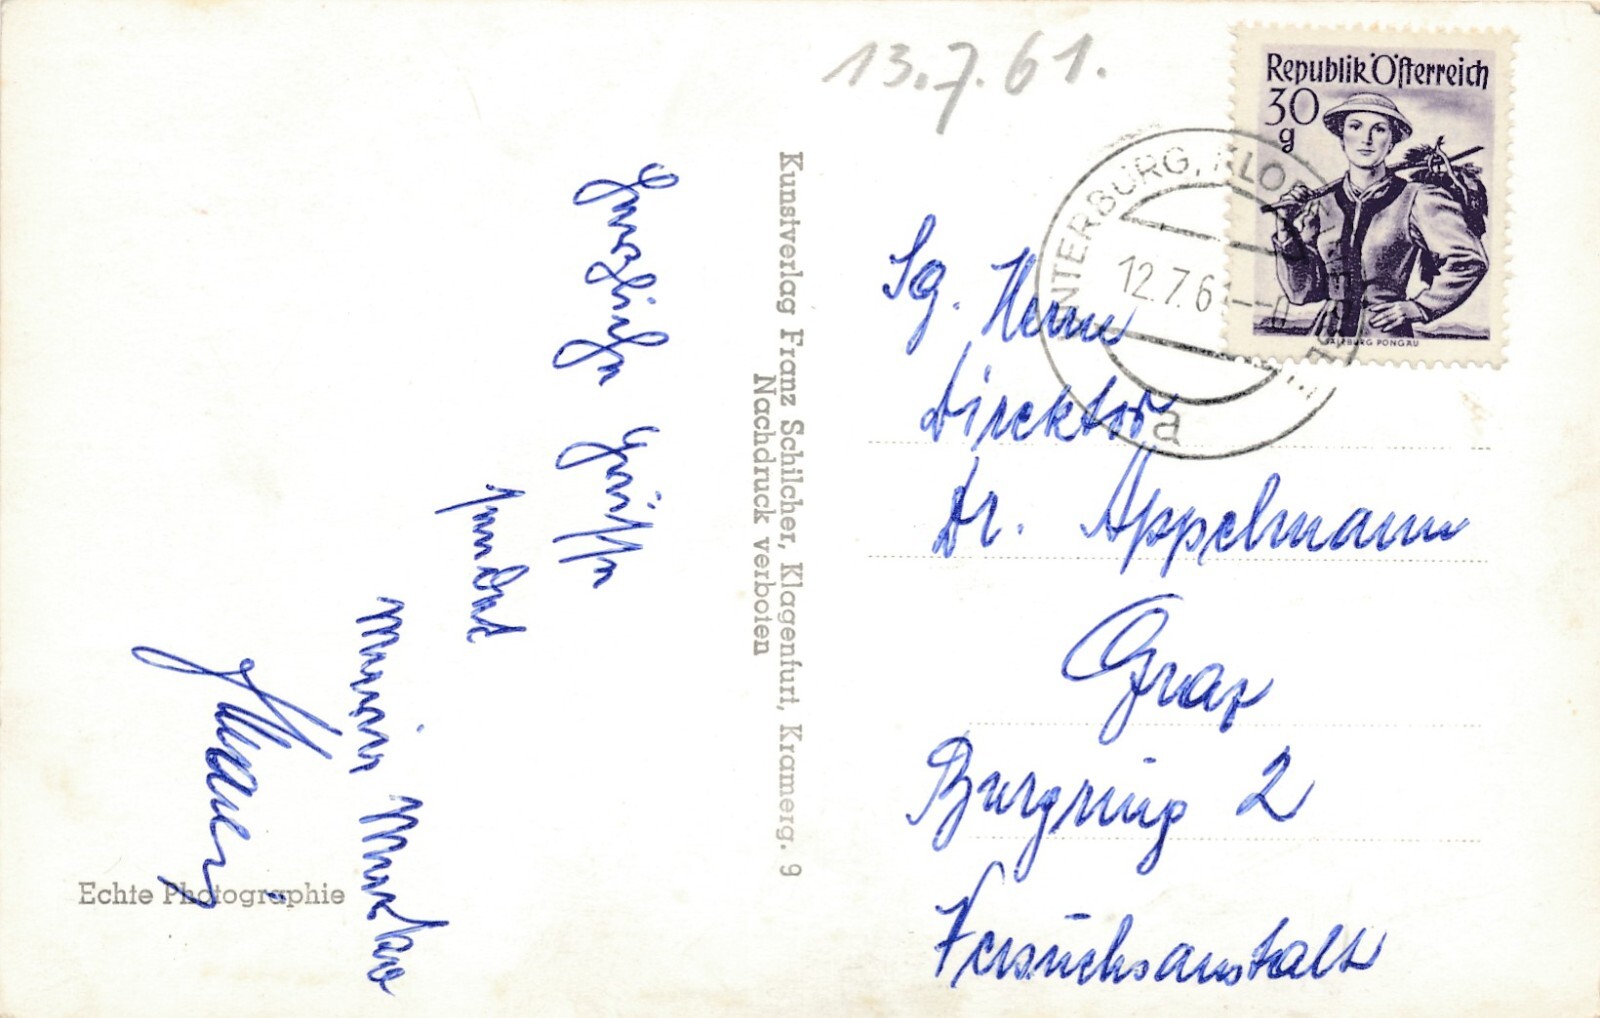 13.7.61.
Republik Österreich
30
g
SALZBURG PONGAU
UNTERBURG, KLO
12.7.61
a
Herzliche Grüsse
sendet
Kunstverlag Franz Schilcher, Klagenfurt, Kramerg. 9
Nachdruck verboten
Echte Photographie
Sg. Herrn
Direktor
Dr. Appelmann
Graz
Burgring 2
Versuchsanstalt